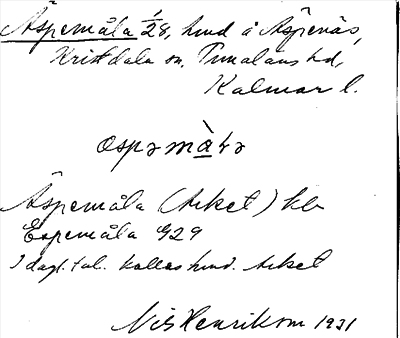 Äspemåla 1/28, hmd å Äspenäs,
Kristdala sn, Tunaläns hd,
Kalmar l.
ospəmà̱lə
Äspemåla (Arket) kb
Espemåla 929
I dagl. tal. kallas hmd. Arket
Nils Henrikson 1931